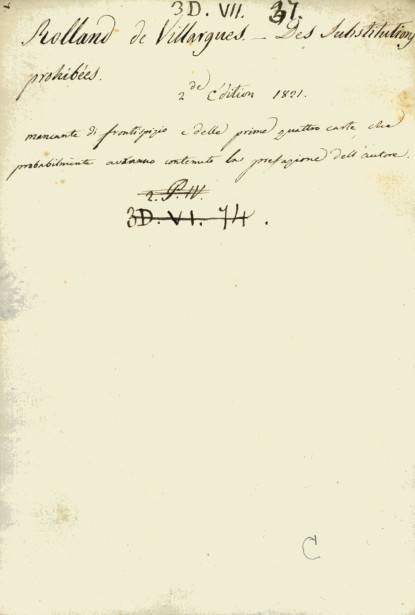 3D. VII. 37.
Rolland de Villargues. _ Des Substitutions
prohibées.
2de Édition 1821.
mancante di frontispizio e delle prime quattro carte che
probabilmente avranno contenuto la prefazione dell'autore.
2. P. IV.
3D. VI. 74.
C